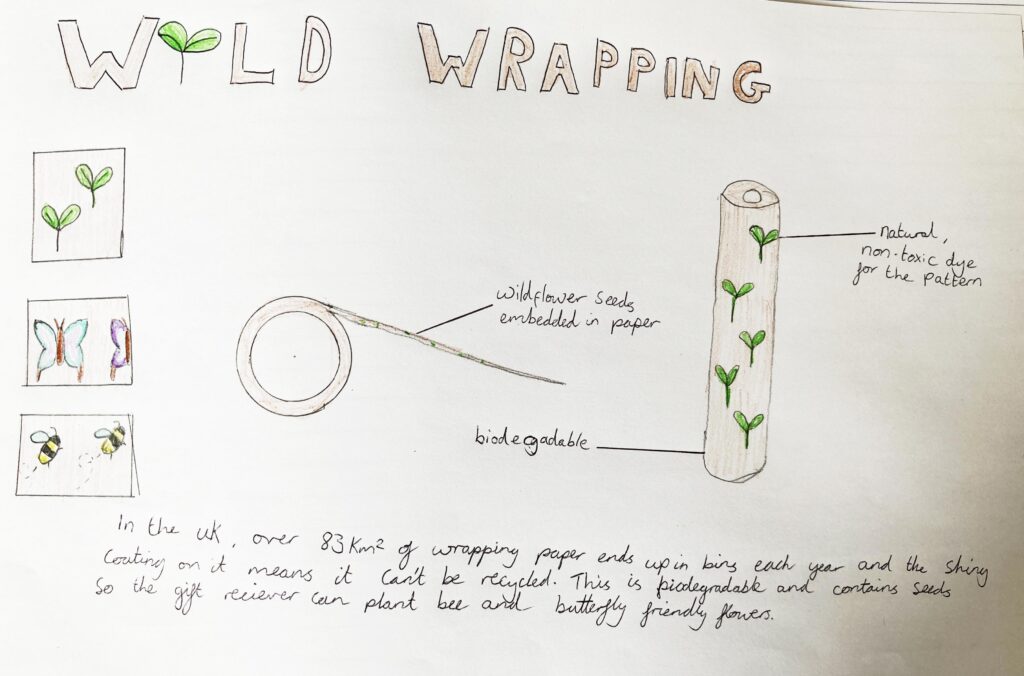 WILD WRAPPING
natural,
non-toxic dye
for the pattern
wildflower seeds
embedded in paper
biodegadable
In the UK, over 83Km² of wrapping paper ends up in bins each year and the shiny
coating on it means it can't be recycled. This is biodegradable and contains seeds
so the gift reciever can plant bee and butterfly friendly flowers.